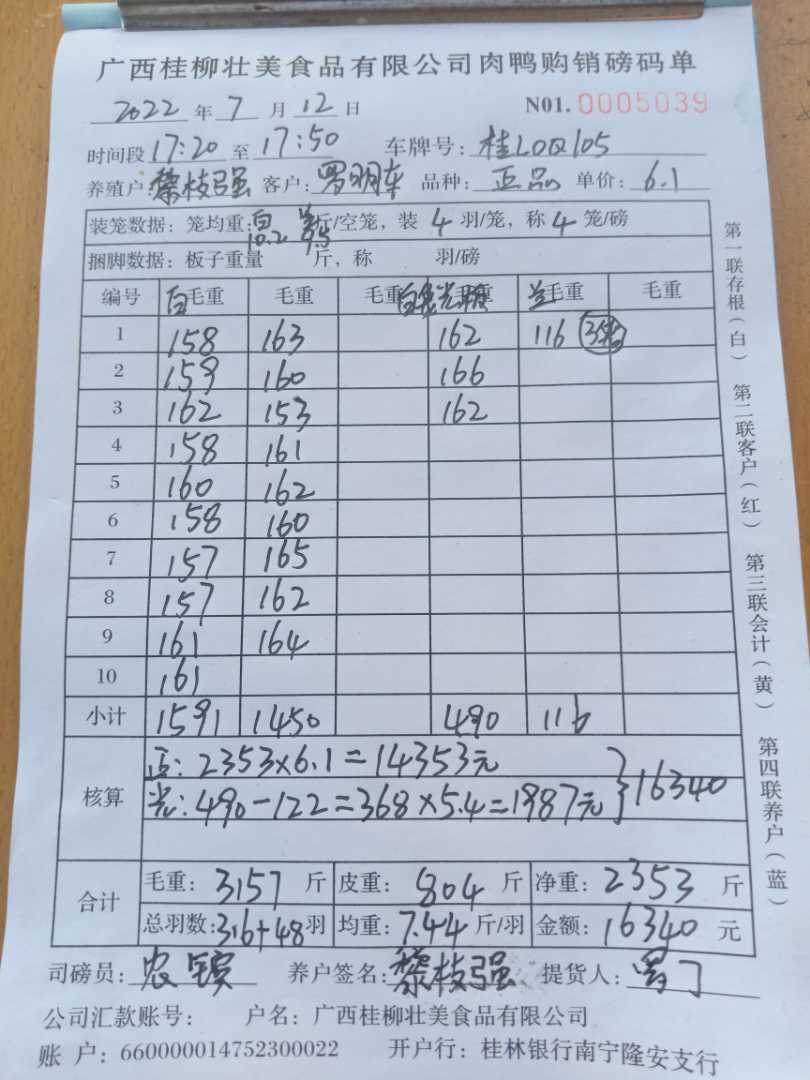 广西桂柳壮美食品有限公司肉鸭购销磅码单
2022 年 7 月 12 日 N01. 0005039
时间段 17:20 至 17:50 车牌号: 桂L0Q105
养殖户: 黎枝强 客户: 品种: 正品 单价: 6.1
装笼数据: 笼均重: 白10.2 斤/空笼, 装 4 羽/笼, 称 4 笼/磅
捆脚数据: 板子重量 斤, 称 羽/磅
编号 白毛重 毛重 毛重 毛重 兰毛重 毛重
1 158 163 162 116
2 159 160 166
3 162 153 162
4 158 161
5 160 162
6 158 160
7 157 165
8 157 162
9 161 164
10 161
小计 1591 1450 490 116
核算 正: 2353×6.1=14353元
光: 490-122=368×5.4=1987元 }16340
合计 毛重: 3157 斤 皮重: 804 斤 净重: 2353 斤
总羽数: 316+48 羽 均重: 7.44 斤/羽 金额: 16340 元
司磅员: 养户签名: 黎枝强 提货人:
公司汇款账号: 户名: 广西桂柳壮美食品有限公司
账 户: 660000014752300022 开户行: 桂林银行南宁隆安支行
第一联存根(白) 第二联客户(红) 第三联会计(黄) 第四联养户(蓝)